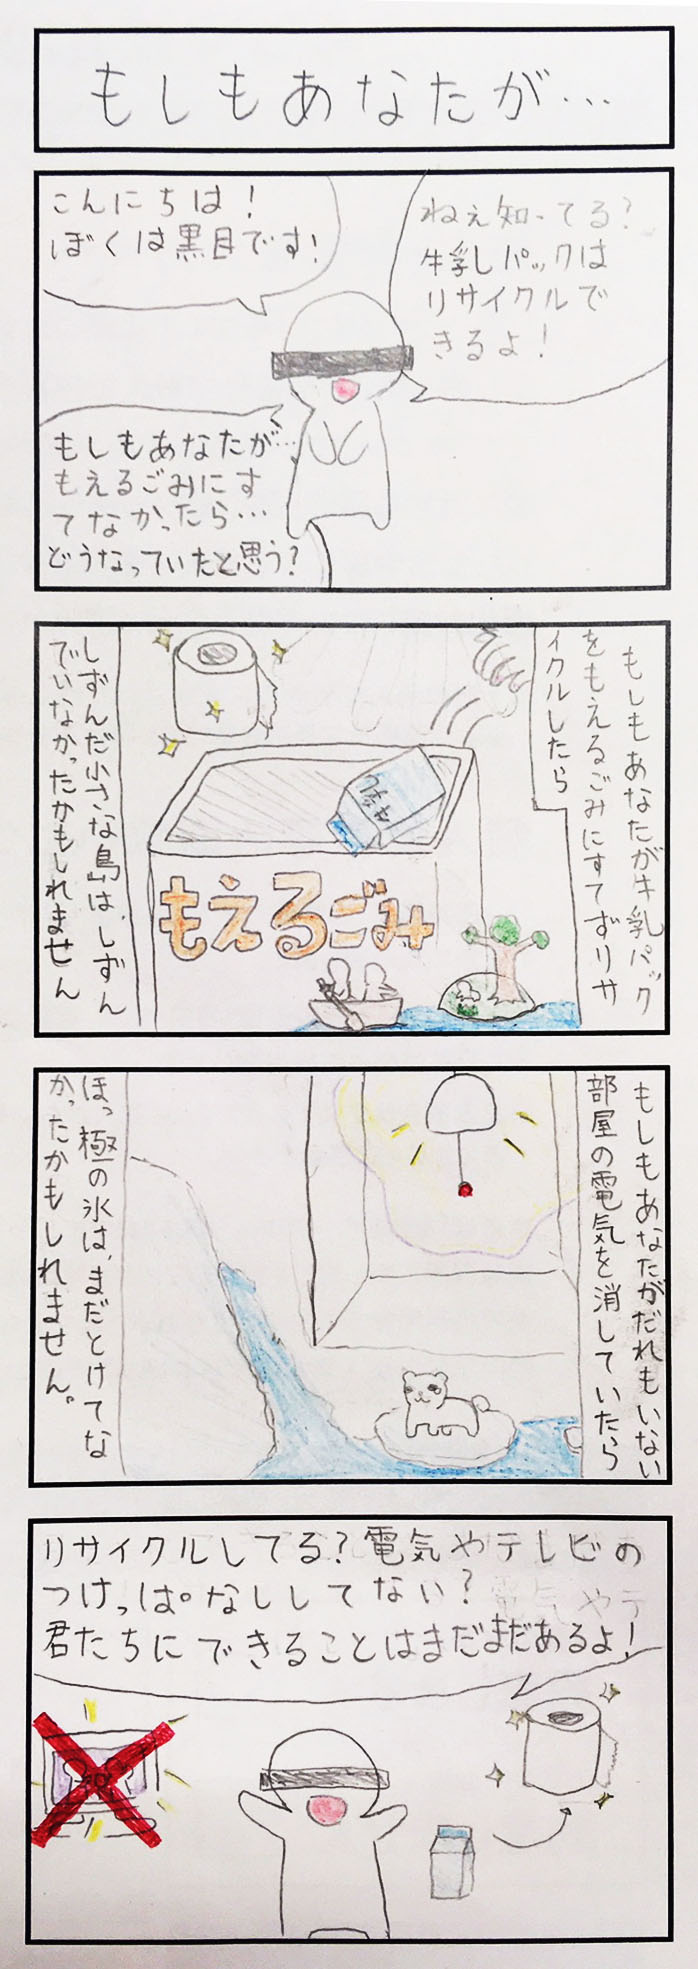 もしもあなたが…
こんにちは!
ぼくは黒目です!
ねぇ知ってる?
牛乳パックは
リサイクルで
きるよ!
もしもあなたが…
もえるごみにす
てなかったら…
どうなっていたと思う?
もしもあなたが牛乳パック
をもえるごみにすてずリサ
イクルしたら
牛乳
もえるごみ
しずんだ小さな島は、しずん
でいなかったかもしれません
もしもあなたがだれもいない
部屋の電気を消していたら
ほっ極の氷は、まだとけてな
かったかもしれません。
リサイクルしてる?電気やテレビの
つけっぱなししてない?
君たちにできることはまだまだあるよ!